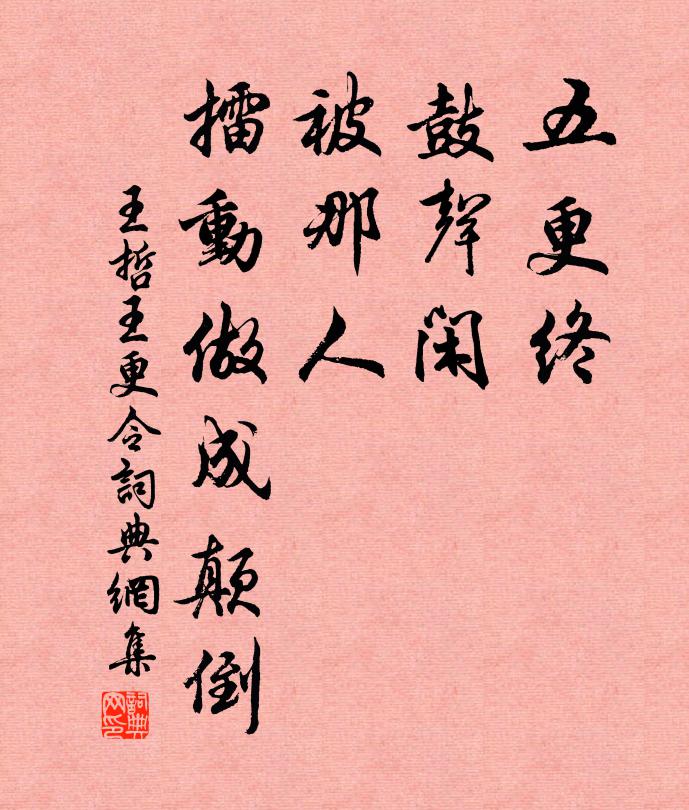 五更终
鼓聲闲
被那人
擂動做成颠倒
王哲王更令詞典網集
詞典网印